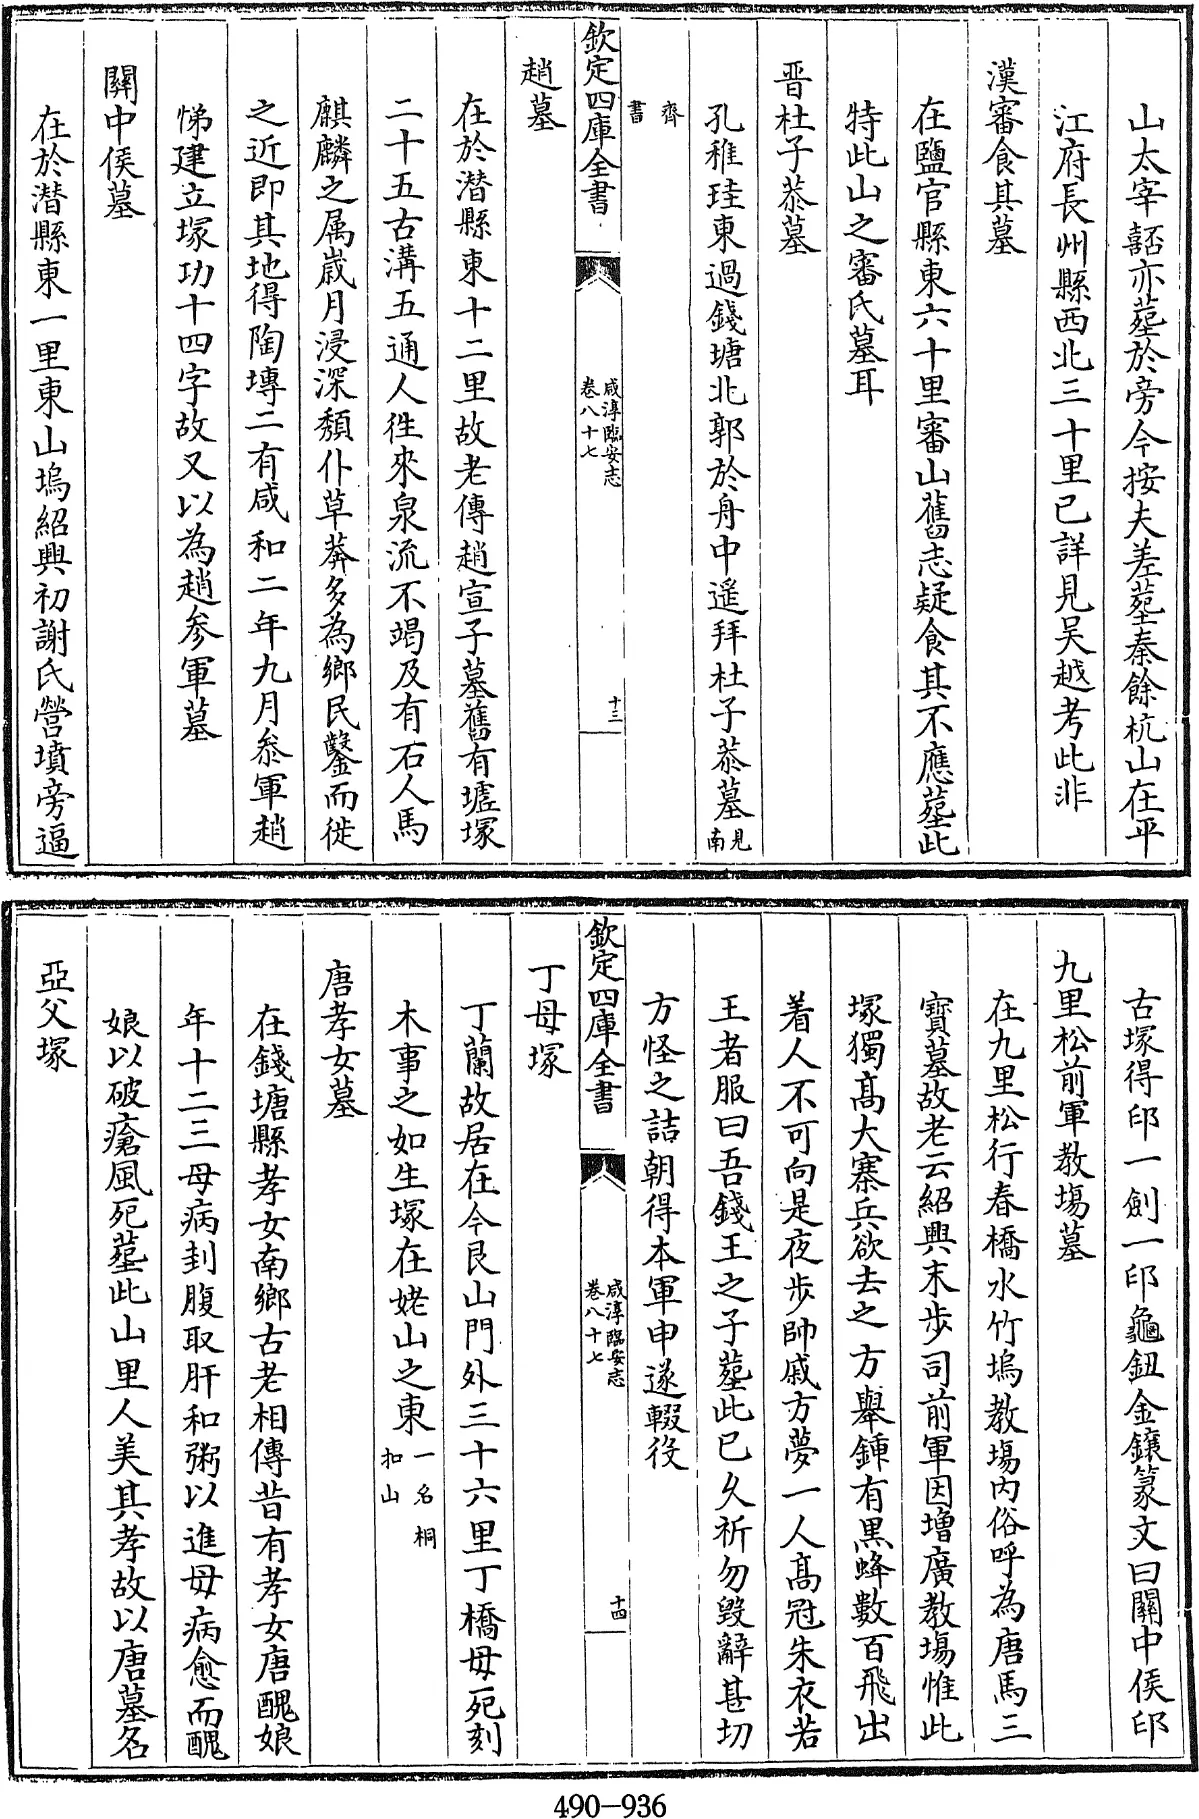 山太宰嚭亦塟於旁今按夫差塟秦餘杭山在平
江府長州縣西北三十里已詳見吳越考此非
漢審食其墓
在鹽官縣東六十里審山舊志疑食其不應塟此
特此山之審氏墓耳
晋杜子恭墓
孔稚珪東過錢塘北郭於舟中遥拜杜子恭墓見南
齊書
欽定四庫全書
咸淳臨安志
卷八十七
十三
趙墓
在於潛縣東十二里故老傳趙宣子墓舊有墟塚
二十五古溝五通人徃來泉流不竭及有石人馬
麒麟之属嵗月浸深頽仆草莽多為鄉民鑿而徙
之近即其地得陶塼二有咸和二年九月叅軍趙
悌建立塚功十四字故又以為趙参軍墓
關中侯墓
在於潛縣東一里東山塢紹興初謝氏營墳旁逼
古塚得印一劍一印龜鈕金鑲篆文曰關中侯印
九里松前軍教塲墓
在九里松行春橋水竹塢教塲内俗呼為唐馬三
寳墓故老云紹興末步司前軍因增廣教塲惟此
塚獨髙大寨兵欲去之方舉鍤有黒蜂數百飛出
着人不可向是夜步帥戚方夢一人髙冠朱衣若
王者服曰吾錢王之子塟此已久祈勿毁辭甚切
方怪之詰朝得本軍申遂輟役
欽定四庫全書
咸淳臨安志
卷八十七
十四
丁母塚
丁蘭故居在今艮山門外三十六里丁橋母死刻
木事之如生塚在姥山之東一名桐
扣山
唐孝女墓
在錢塘縣孝女南鄉古老相傳昔有孝女唐醜娘
年十二三母病刲腹取肝和粥以進母病愈而醜
娘以破瘡風死塟此山里人美其孝故以唐墓名
亞父塚
490-936